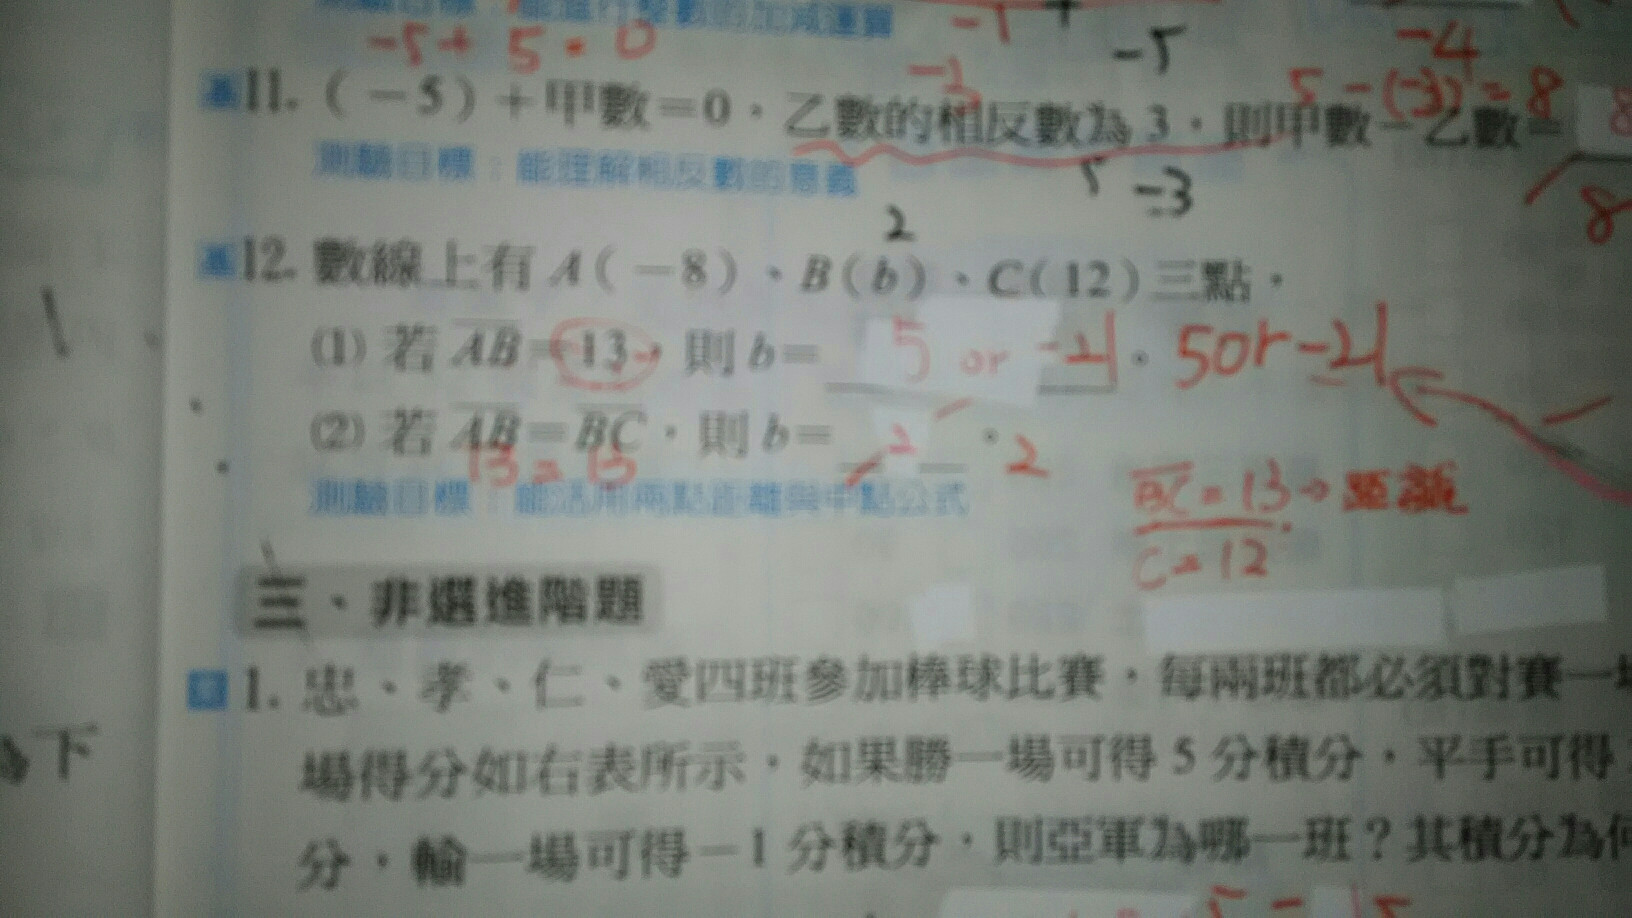 測驗目標：能進行整數的加減運算
-1
-5
-4
-5+5=0
-3
5-(-3)=8
11. (-5)+甲數=0，乙數的相反數為 3，則甲數-乙數= 8
測驗目標：能理解相反數的意義
5 -3
8
2
12. 數線上有 A(-8)、B(b)、C(12)三點，
(1) 若 AB=13，則 b= 5 or -21 。 5 or -21
(2) 若 AB=BC，則 b= 2 。 2
13=13
測驗目標：能活用兩點距離與中點公式
BC=13→距離
C=12
三、非選進階題
1. 忠、孝、仁、愛四班參加棒球比賽，每兩班都必須對賽一
下
場得分如右表所示，如果勝一場可得 5 分積分，平手可得
分，輸一場可得-1 分積分，則亞軍為哪一班？其積分為何